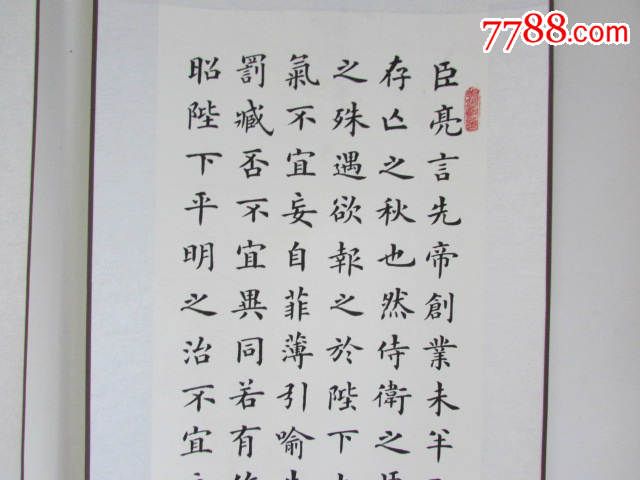 7788.com
臣亮言先帝創業未半
存亡之秋也然侍衛之
之殊遇欲報之於陛下
氣不宜妄自菲薄引喻
罰臧否不宜異同若有
昭陛下平明之治不宜